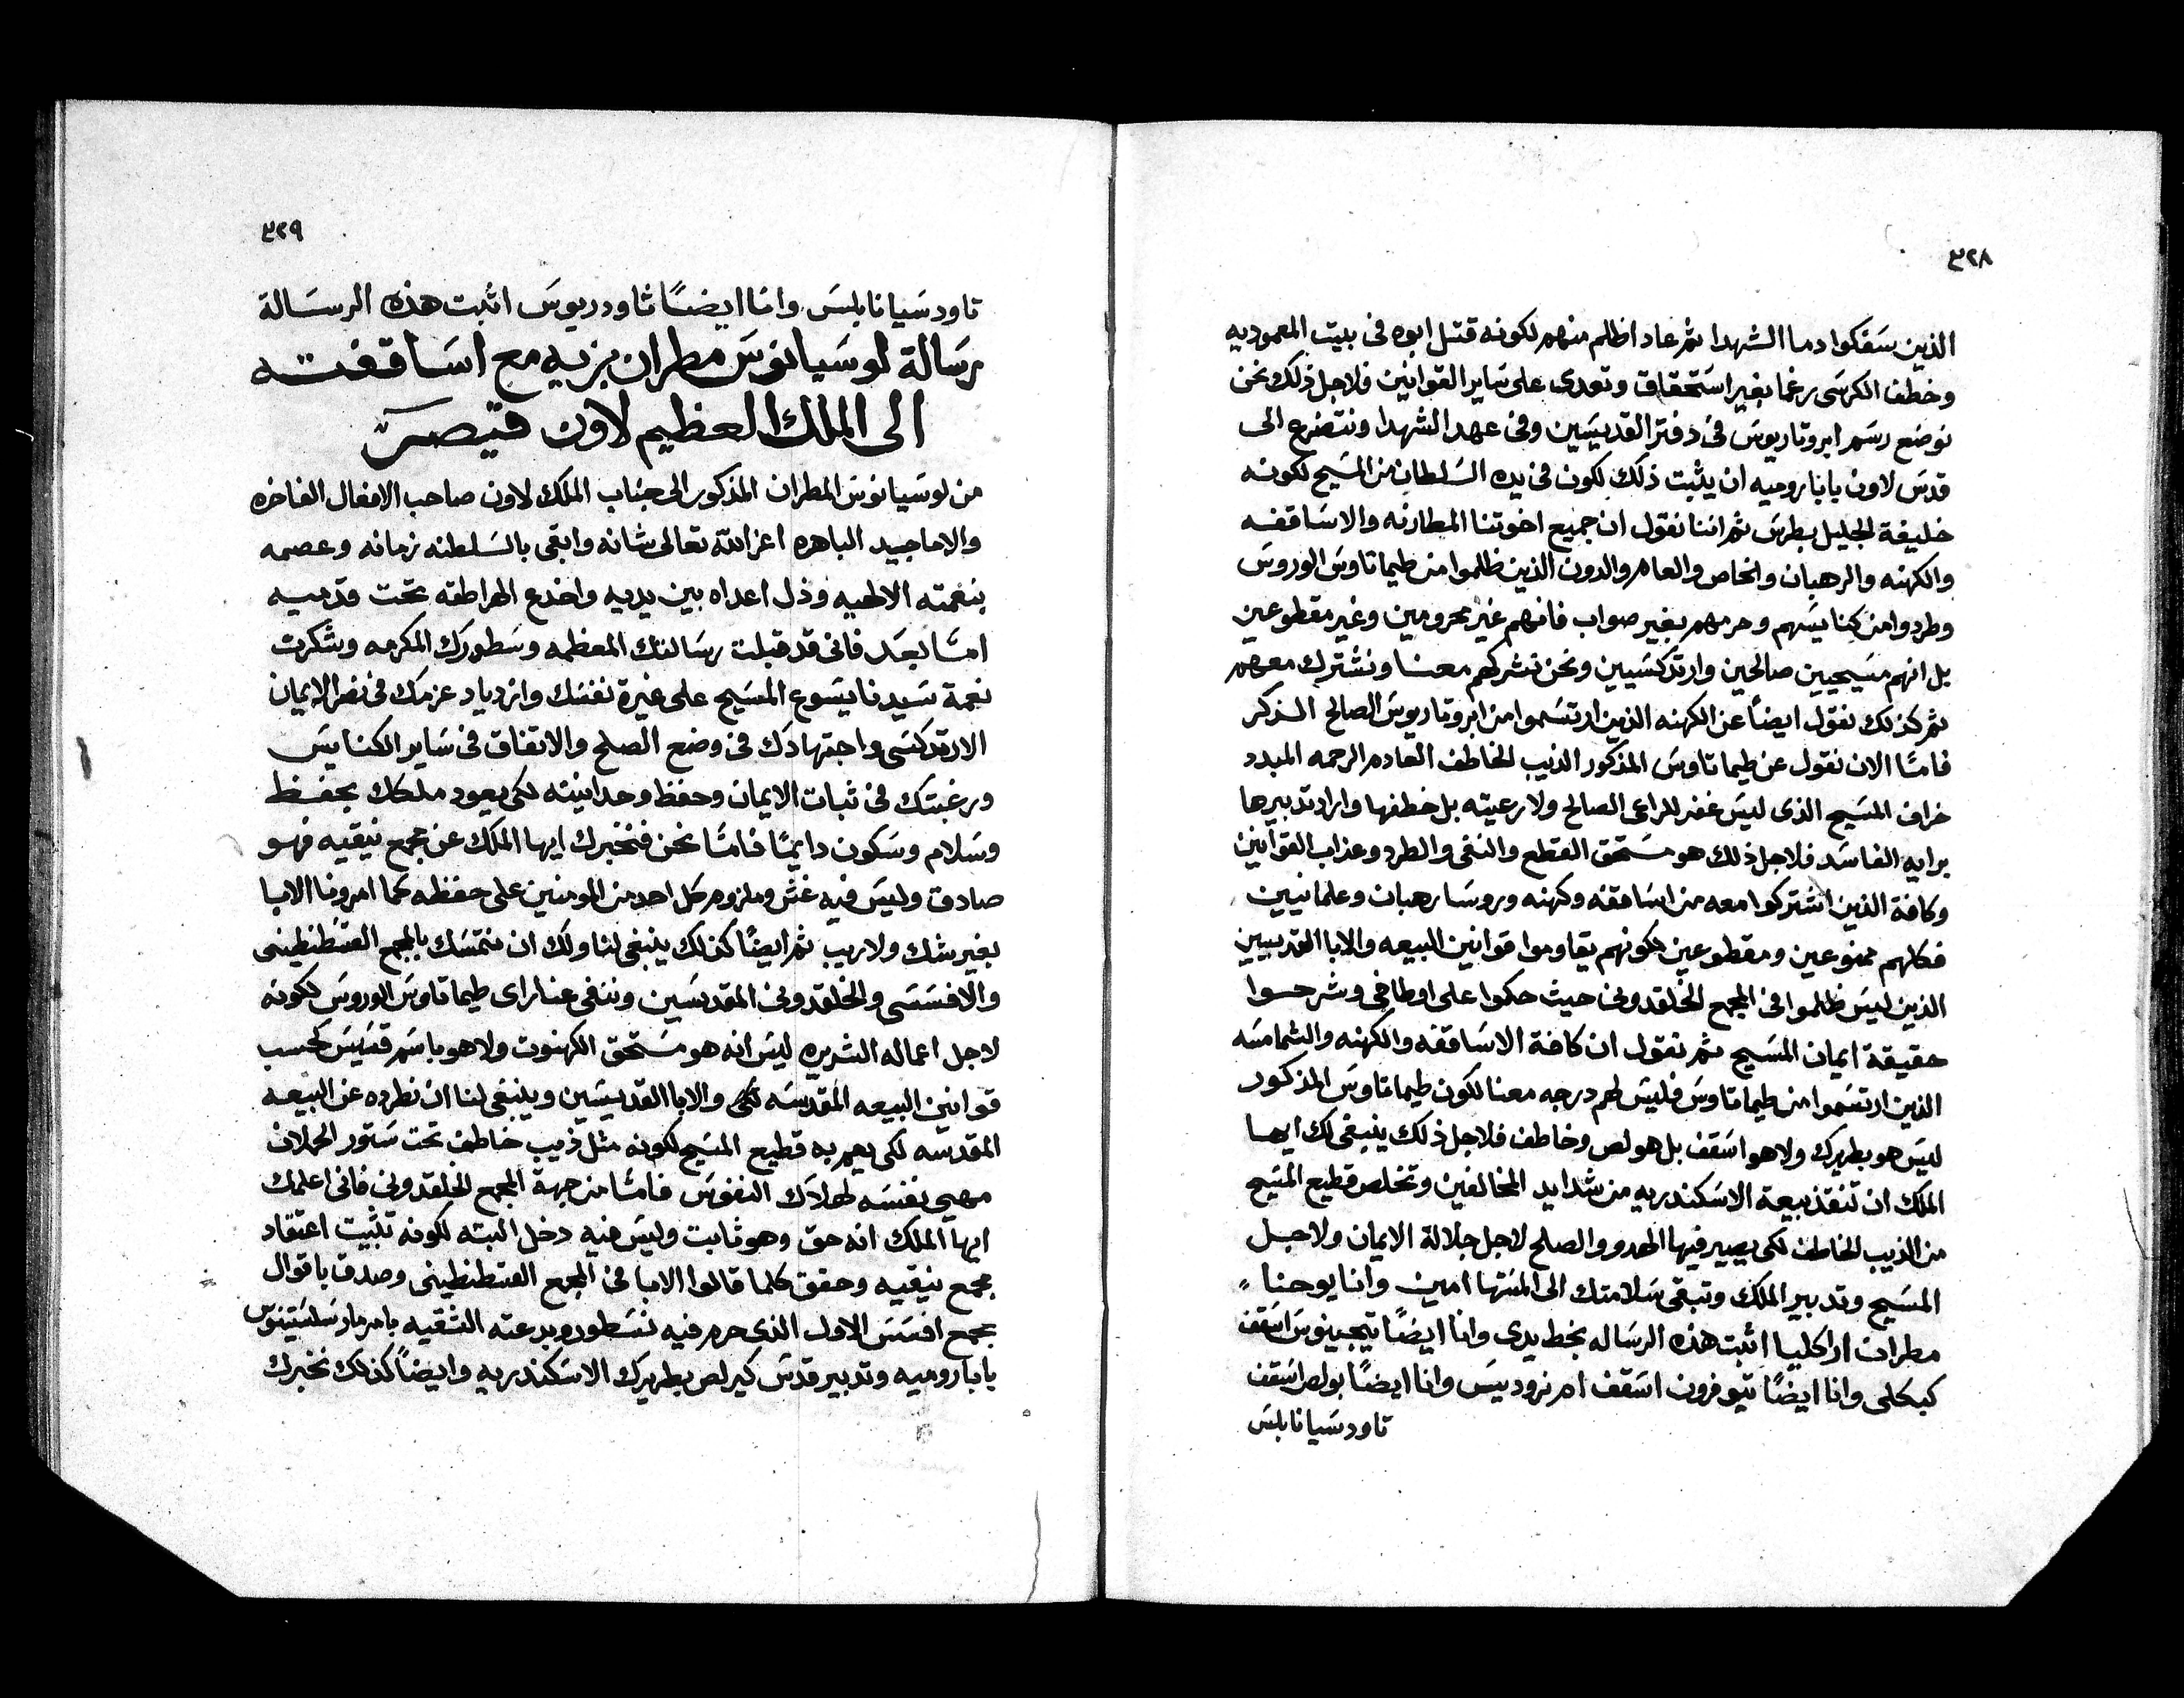 ٣٢٨
الذين سفكوا دما الشهدا ثم عاد اظلم منهم لكونه قتل ابوه فى بيت المعموديه
وخطف الكرسى رغما بغير استحقاق وتعدى على ساير القوانين فلاجل ذلك نحن
نوضع رسم ابروتاريوس فى دفتر القديسين وفى عهد الشهدا ونتضرع الى
قدس لاون بابا روميه ان يثبت ذلك لكون فى يده السلطان من المسيح لكونه
خليفة الجليل بطرس ثم اننا نقول ان جميع اخوتنا المطارنه والاساقفه
والكهنه والرهبان والخاص والعام والدون الذين ظلموا من طيماتاوس الوروس
وطردوا من كنايسهم وحرمهم بغير صواب فانهم غير محرومين وغير مقطوعين
بل انهم مسيحيين صالحين وارتدكسيين ونحن نشركهم معنا ونشترك معهم
ثم كذلك نقول ايضاً عن الكهنه الذين ارتسموا من ابروتاريوس الصالح الذكر
فامّا الان نقول عن طيماتاوس المذكور الذيب الخاطف العادم الرحمه المبدد
خراف المسيح الذى ليس غفر للراعى الصالح ولا رعيته بل خطفها واراد تدبيرها
برايه الفاسد فلاجل ذلك هو مستحق القطع والنفى والطرد وعذاب القوانين
وكافة الذين اشتركوا معه من اساقفه وكهنه وروسا رهبان وعلمانيين
فكلهم ممنوعين ومقطوعين لكونهم يقاوموا قوانين البيعه والابا القديسين
الذين ليس ظلموا فى المجمع الخلقدونى حيث حكموا على اوطاخى وشرحوا
حقيقة ايمان المسيح ثم نقول ان كافة الاساقفه والكهنه والشمامسه
الذين ارتسموا من طيماتاوس فليس لهم درجه معنا لكون طيماتاوس المذكور
ليس هو بطريرك ولا هو اسقف بل هو لص وخاطف فلاجل ذلك ينبغى لك ايها
الملك ان تنقذ بيعة الاسكندريه من شدايد المخالفين وتخلص قطيع المسيح
من الذيب الخاطف لكى يصير فيها الهدو والصلح لاجل جلالة الايمان ولاجل
المسيح وتدبير الملك وتبقى سلامتك الى المنتها امين وانا يوحنا
مطران اراكليا اثبت هذه الرساله بخط يدى وانا ايضًا يتجينوس اسقف
كبكلى وانا ايضًا تيوفرون اسقف امرنروديس وانا ايضًا بولص اسقف
تاودسيانابلس
٣٢٩
تاودسيانابلس وانا ايضًا ثاودريوس اثبت هذه الرسالة
رسالة لوسيانوس مطران بزيه مع اساقفته
الى الملك العظيم لاون قيصر
من لوسيانوس المطران المذكور الى جناب الملك لاون صاحب الافعال الفاخره
والاماجيد الباهره اعز الله تعالى شانه وابقى بالسلطنه زمانه وعصمه
بنعمته الالهيه وذل اعداه بين يديه واخدع الهراطقه تحت قدميه
امّا بعد فانى قد قبلت رسالتك المعظمه وسطورك المكرمه وشكرت
نعمة سيدنا يسوع المسيح على غيرة نفسك وازدياد عزمك فى نصر الايمان
الارتدكسى واجتهادك فى وضع الصلح والاتفاق فى ساير الكنايس
ورغبتك فى ثبات الايمان وحفظ وحدانيته لكى يعود ملكك بحفظ
وسلام وسكون دايمًا فامّا نحن فنخبرك ايها الملك عن مجمع نيقيه فهو
صادق وليس فيه غش وملزوم كل احد من المومنين على حفظه كما امرونا الابا
بغير شك ولا ريب ثم ايضًا كذلك ينبغى لنا ولك ان نتمسك بالمجمع القسطنطينى
والافسسى والخلقدونى المقدسين وننفى عنا راى طيماتاوس الوروس لكونه
لاجل اعماله الشريره ليس انه هو مستحق الكهنوت ولا هو باسم قسيس كحسب
قوانين البيعه المقدسه والابا القديسين وينبغى لنا ان نطرده عن البيعه
المقدسه لكى يهم به قطيع المسيح لكونه مثل ذيب خاطف تحت ستور الحملان
مهيى نفسه لهلاك النفوس فامّا من جهة المجمع الخلقدونى فانى اعلمك
ايها الملك انه حق وهو ثابت وليس فيه دخل البته لكونه تثبيت اعتقاد
مجمع نيقيه وحقق كلما قالوا الابا فى المجمع القسطنطينى وصدق باقوال
مجمع افسس الاول الذى حرم فيه نسطور وبدعته الشقيه بامر مار سلستينوس
بابا روميه وتدبير قدس كيرلص بطريرك الاسكندريه وايضاً كذلك نخبرك